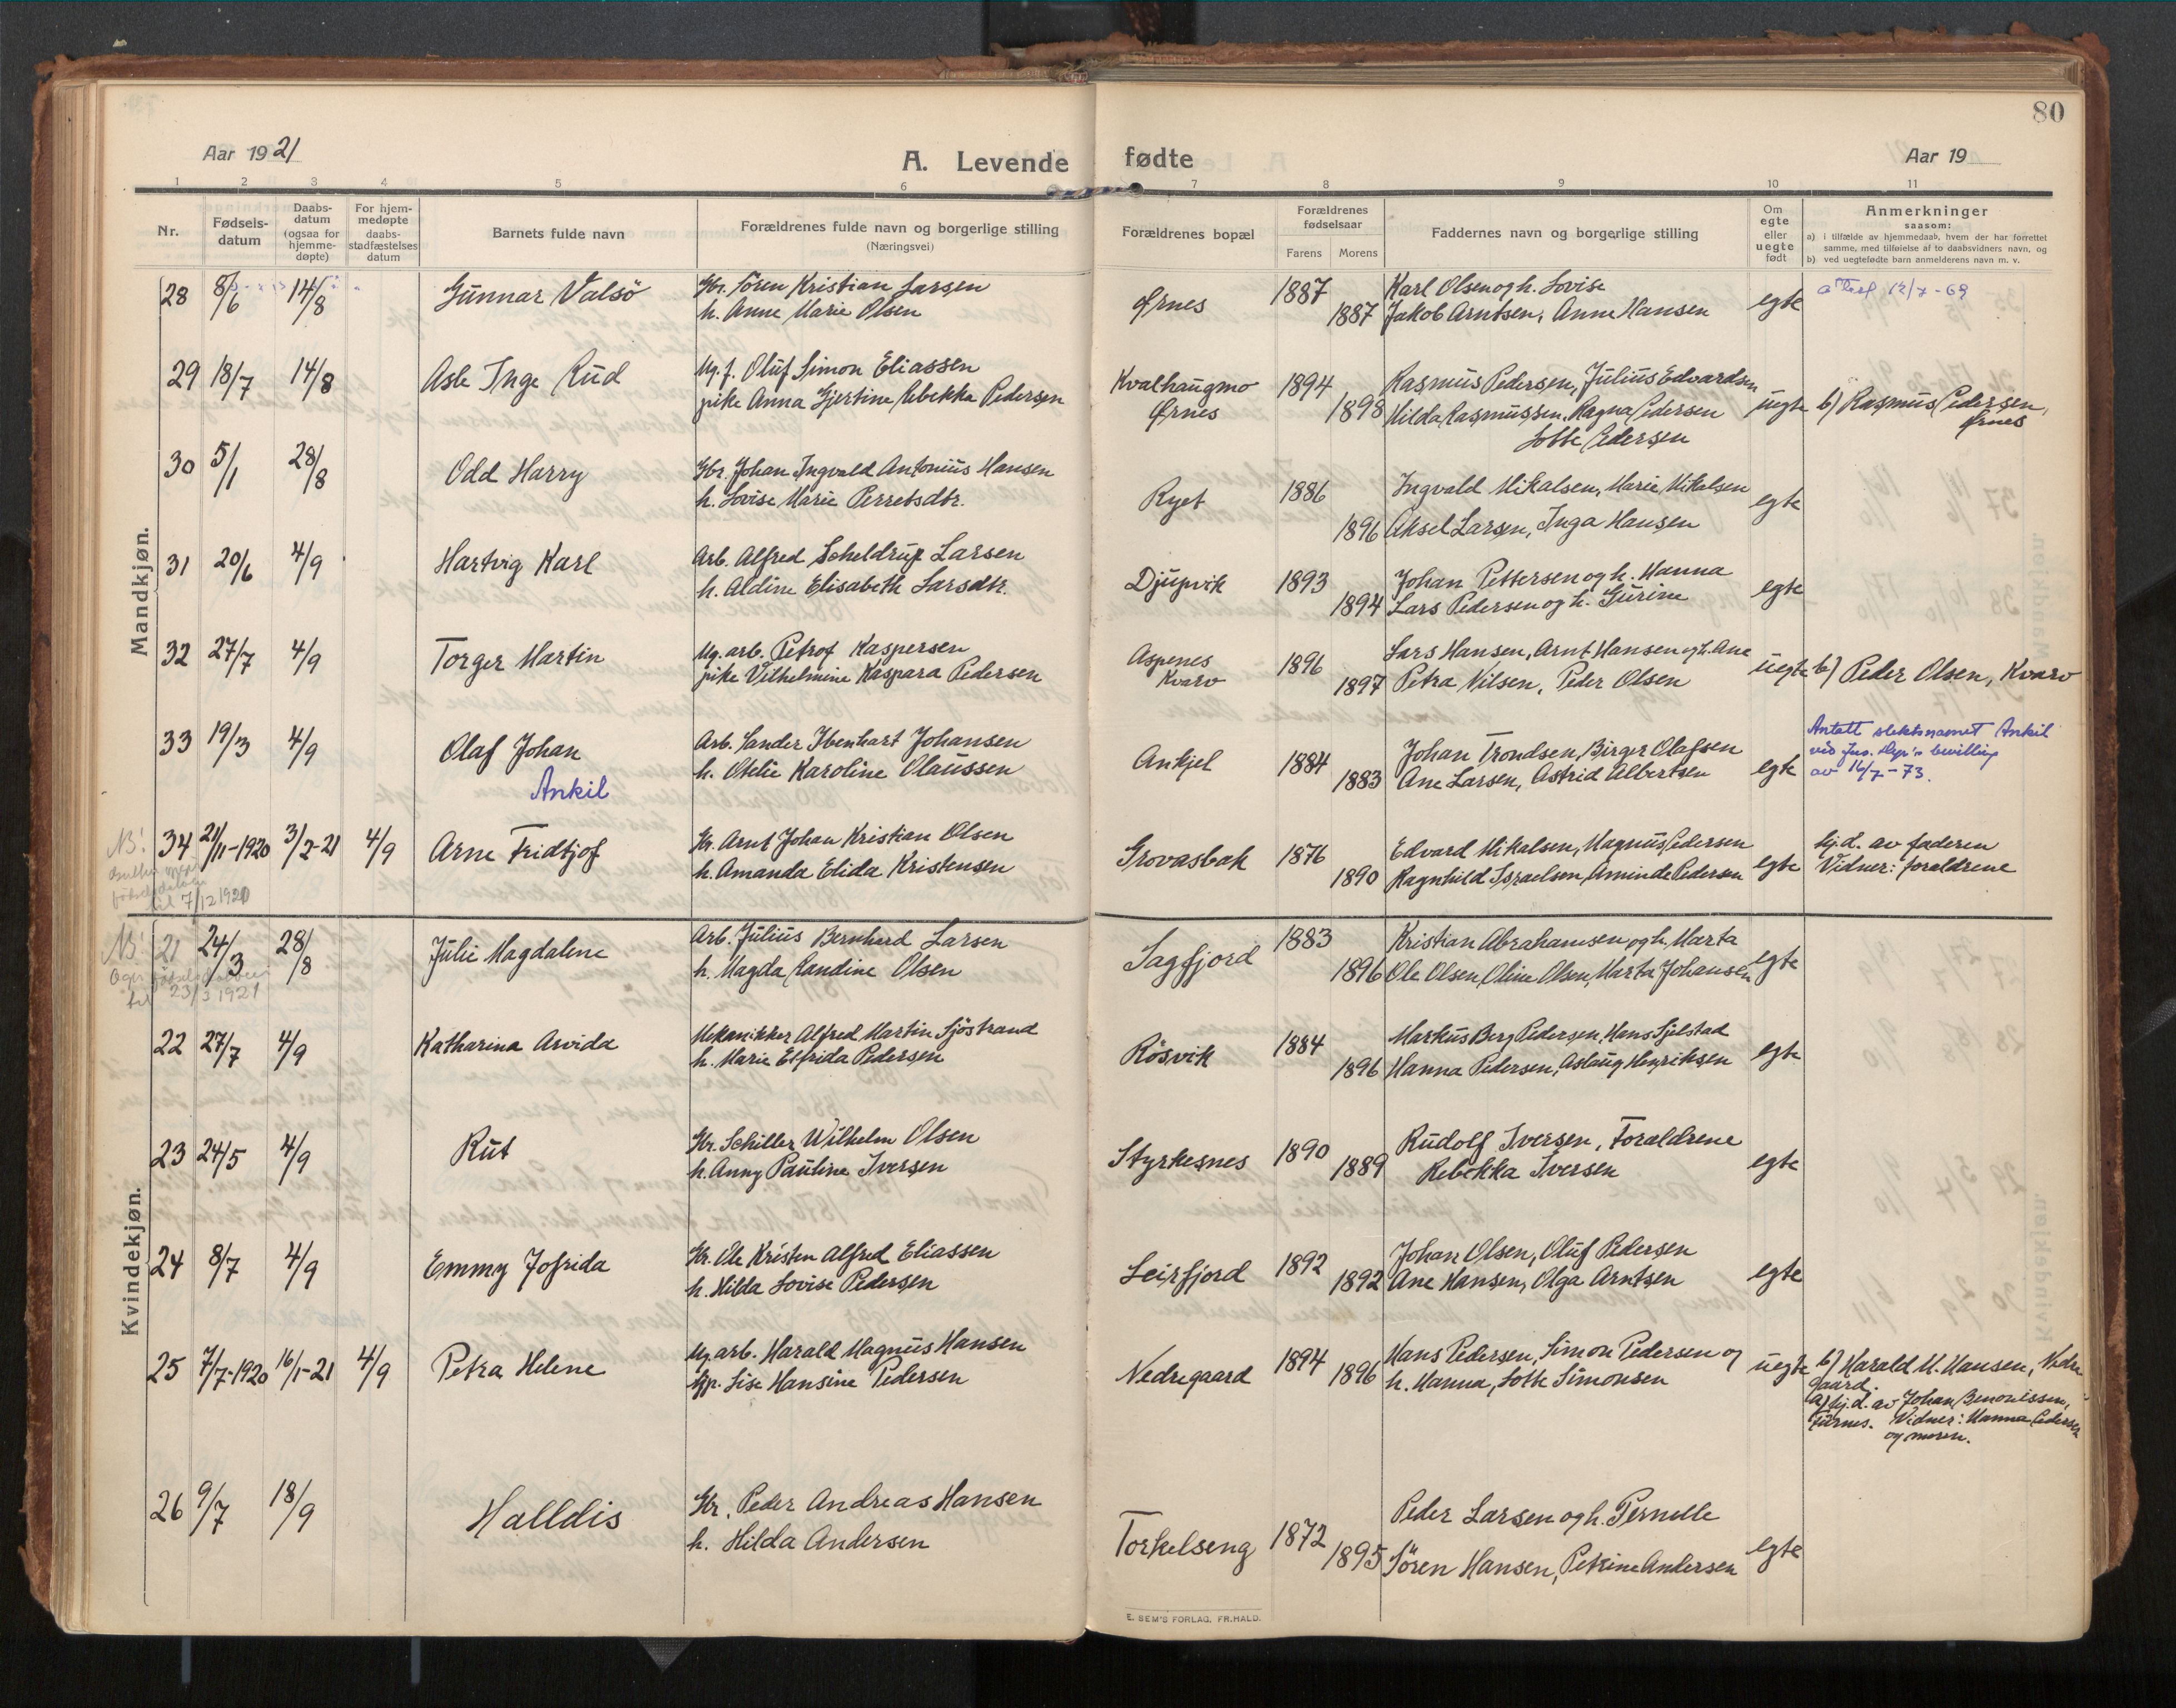 80
Aar 1921
A. Levende fødte
Aar 19
1 2 3 4 5 6 7 8 9 10 11
Nr.
Fødsels-
datum
Daabs-
datum
(ogsaa for
hjemme-
døpte)
For hjem-
medøpte
daabs-
stadfæstelses
datum
Barnets fulde navn
Forældrenes fulde navn og borgerlige stilling
(Næringsvei)
Forældrenes bopæl
Forældrenes
fødselsaar
Farens Morens
Faddernes navn og borgerlige stilling
Om
egte
eller
uegte
født
Anmerkninger
saasom:
a) i tilfælde av hjemmedaab, hvem der har forrettet
samme, med tilføielse af to daabsvidners navn, og
b) ved uegtefødte barn anmelderens navn m. v.
Mandkjøn.
28 8/6 14/8 Gunnar Valsö Gbr. Sören Kristian Larsen Ørnes 1887 Karl Olsen og h. Lovise egte 12/7-69
h. Anne Marie Olsen 1887 Jakob Arntsen, Anne Hansen
29 18/7 14/8 Asle Inge Rud Ug. f. Oluf Simon Eliassen Kvalhaugmo 1894 Rasmus Pedersen, Julius Edvardsen uegte b) Rasmus Pedersen,
pike Anna Gjertine Rebekka Pedersen Ørnes 1898 Hilda Rasmussen, Ragna Pedersen Ørnes
Lotte Pedersen
30 5/1 28/8 Odd Harry Gbr. Johan Ingvald Antonius Hansen Ryet 1886 Ingvald Mikalsen, Marie Mikalsen egte
h. Lovise Marie Perretsdtr. 1896 Aksel Larsen, Inga Hansen
31 20/6 4/9 Hartvig Karl Arb. Alfred Scheldrup Larsen Djupvik 1893 Johan Pettersen og h. Hanna egte
h. Aldine Elisabeth Larsdtr. 1894 Lars Pedersen og h. Gurine
32 27/7 4/9 Torger Martin Ug. arb. Petrof Kaspersen Aspenes 1896 Lars Hansen, Arnt Hansen og h. Ane uegte b) Peder Olsen, Kvarv
pike Vilhelmine Kaspara Pedersen Kvarv 1897 Petra Nilsen, Peder Olsen
33 19/3 4/9 Olaf Johan Arb. Sander Ibenhart Johansen Ankjel 1884 Johan Trondsen, Birger Olafsen egte Antatt slektsnamet Ankil
Ankil h. Otelie Karoline Olaussen 1883 Ane Larsen, Astrid Albertsen ved Jus. Dep's bevilling
av 16/7-73.
NB! 34 21/11-1920 3/2-21 4/9 Arne Fridtjof Gbr. Arnt Johan Kristian Olsen Grovasbak 1876 Edvard Mikalsen, Magnus Pedersen egte hj.d. av faderen
h. Amanda Elida Kristensen 1890 Ragnhild Israelsen, Aminde Pedersen Vidner: foraldrene
til 7/12 1920
Kvindekjøn.
NB! 21 24/3 28/8 Julie Magdalene Arb. Julius Bernhard Larsen Sagfjord 1883 Kristian Abrahamsen og h. Marta egte
h. Magda Randine Olsen 1896 Ole Olsen, Oline Olsen, Marta Johansen
23/3 1921
22 27/7 4/9 Katharina Arvida Mekanikker Alfred Martin Sjöstrand Rösvik 1884 Markus Berg Pedersen, Hans Sjelstad egte
h. Marie Elfrida Pedersen 1896 Hanna Pedersen, Aslaug Henriksen
23 24/5 4/9 Rut Gbr. Schiller Wilhelm Olsen Styrkesnes 1890 Rudolf Iversen, Foraldrene egte
h. Anny Pauline Iversen 1889 Rebekka Iversen
24 8/7 4/9 Emmy Jofrida Gbr. Ole Kristen Alfred Eliassen Leirfjord 1892 Johan Olsen, Oluf Pedersen egte
h. Hilda Lovise Pedersen 1892 Ane Hansen, Olga Arntsen
25 7/7-1920 16/1-21 4/9 Petra Helene Ug. arb. Harald Magnus Hansen Nedregaard 1894 Hans Pedersen, Simon Pedersen og uegte b) Harald M. Hansen, Nedre
Lise Hansine Pedersen 1896 h. Hanna, Lotte Simonsen gaard.
a) hj.d. av Johan Benonissen,
Furnes. Vidner: Hanna Pedersen
og moren.
26 9/7 18/9 Halldis Gbr. Peder Andreas Hansen Torkelseng 1872 Peder Larsen og h. Pernelle egte
h. Hilda Andersen 1895 Sören Hansen, Petrine Andersen
E. SEM'S FORLAG, FR.HALD.